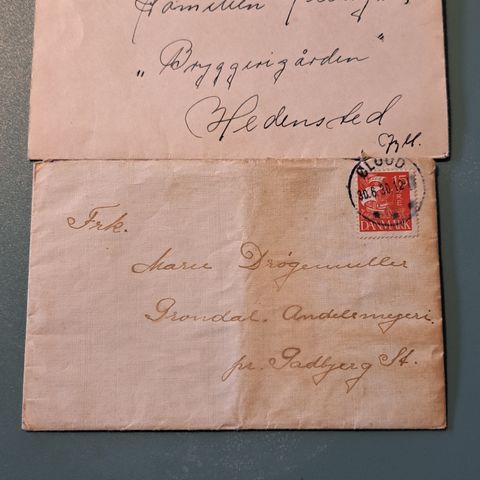 Familien
"Bryggerigården"
Hedensted
Jyll.
GLUD
30.6.30.12-1
15
ØRE
DANMARK
Frk.
Marie Drøgemüller
Grøndal. Andelsmejeri.
pr. Padbjerg St.